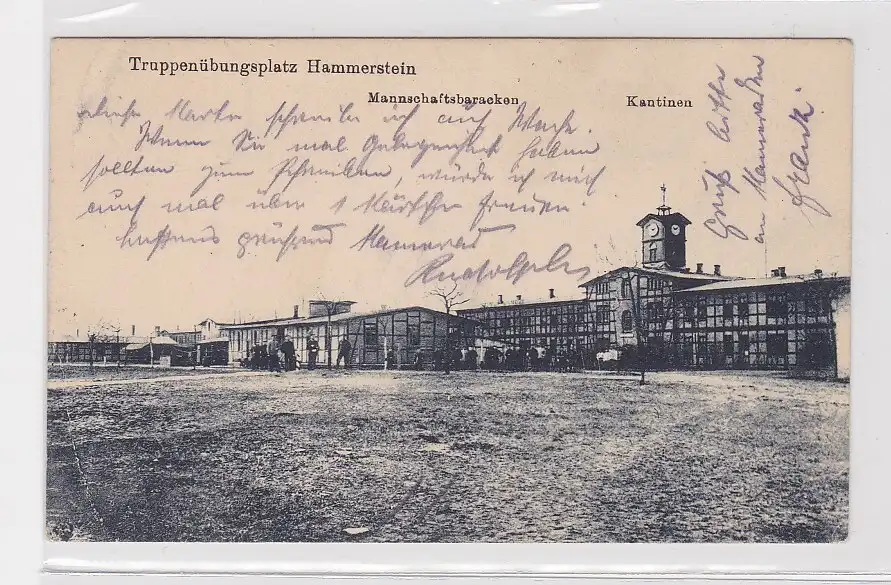 Truppenübungsplatz Hammerstein
Mannschaftsbaracken
Kantinen
Karte schreibe ich auf Wache.
Wenn Sie mal Gelegenheit haben
sollten zum Schreiben, würde ich mich
auch mal über 1 Kärtchen freuen.
grüßend Kamerad
Gruß bitte
an Kameraden
Frank.